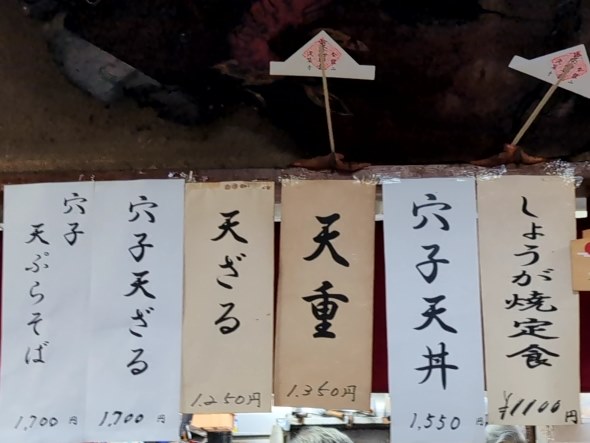 しょうが焼定食
¥1100円
穴子天丼
1,550円
天重
1.350円
天ざる
1.250円
穴子天ざる
1,700円
穴子
天ぷらそば
1,700円